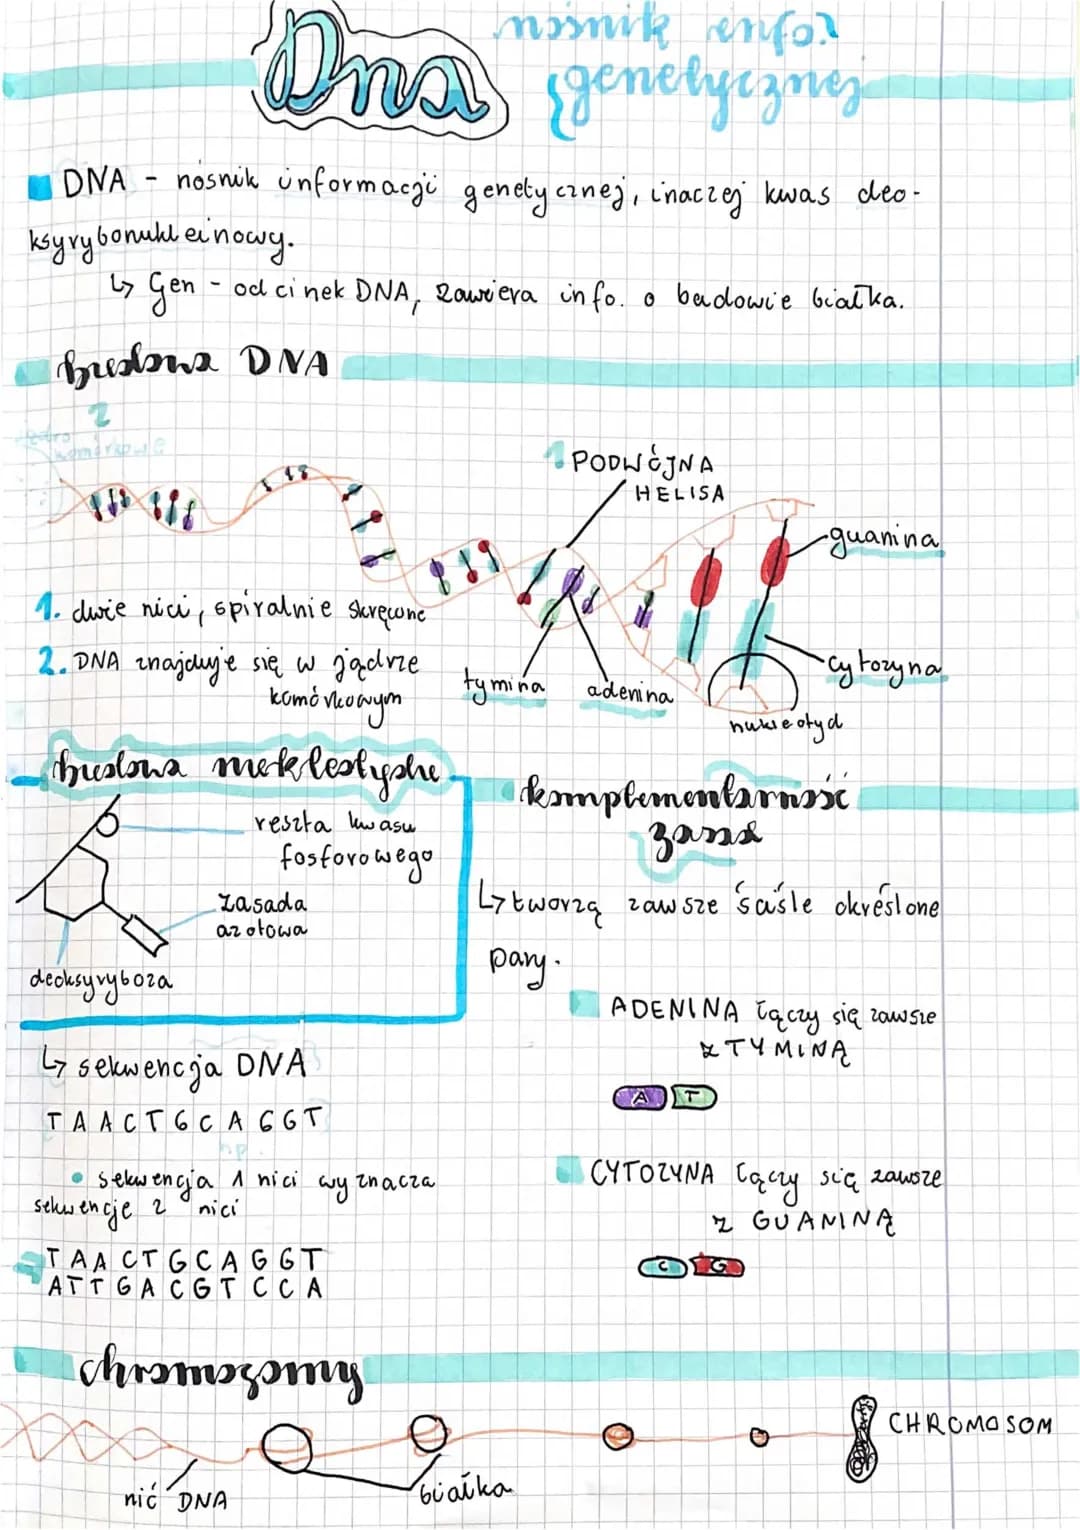 Dna nośnik info.
genetycznej
DNA - nośnik informacji genetycznej, inaczej kwas deo-
ksyrybonukleinowy.
↳ Gen - odcinek DNA, zawiera info. o budowie białka.
budowa DNA
2
jądro
komórkowe
1 PODWÓJNA
HELISA
guanina
1. dwie nici, spiralnie skręcone
2. DNA znajduje się w jądrze
komórkowym
tymina
adenina
cytozyna
nukleotyd
budowa nukleotydu
reszta kwasu
fosforowego
zasada
azotowa
deoksyryboza
komplementarność
zasad
↳ tworzą zawsze ściśle określone
pary.
ADENINA łączy się zawsze
z TYMINĄ
A T
CYTOZYNA łączy się zawsze
z GUANINĄ
C G
↳ sekwencja DNA
TAACTGCAGGT
np.
• sekwencja 1 nici wyznacza
sekwencje 2 nici
TAACTGCAGGT
ATTGACGTCCA
chromosomy
nić DNA
białka
CHROMOSOM